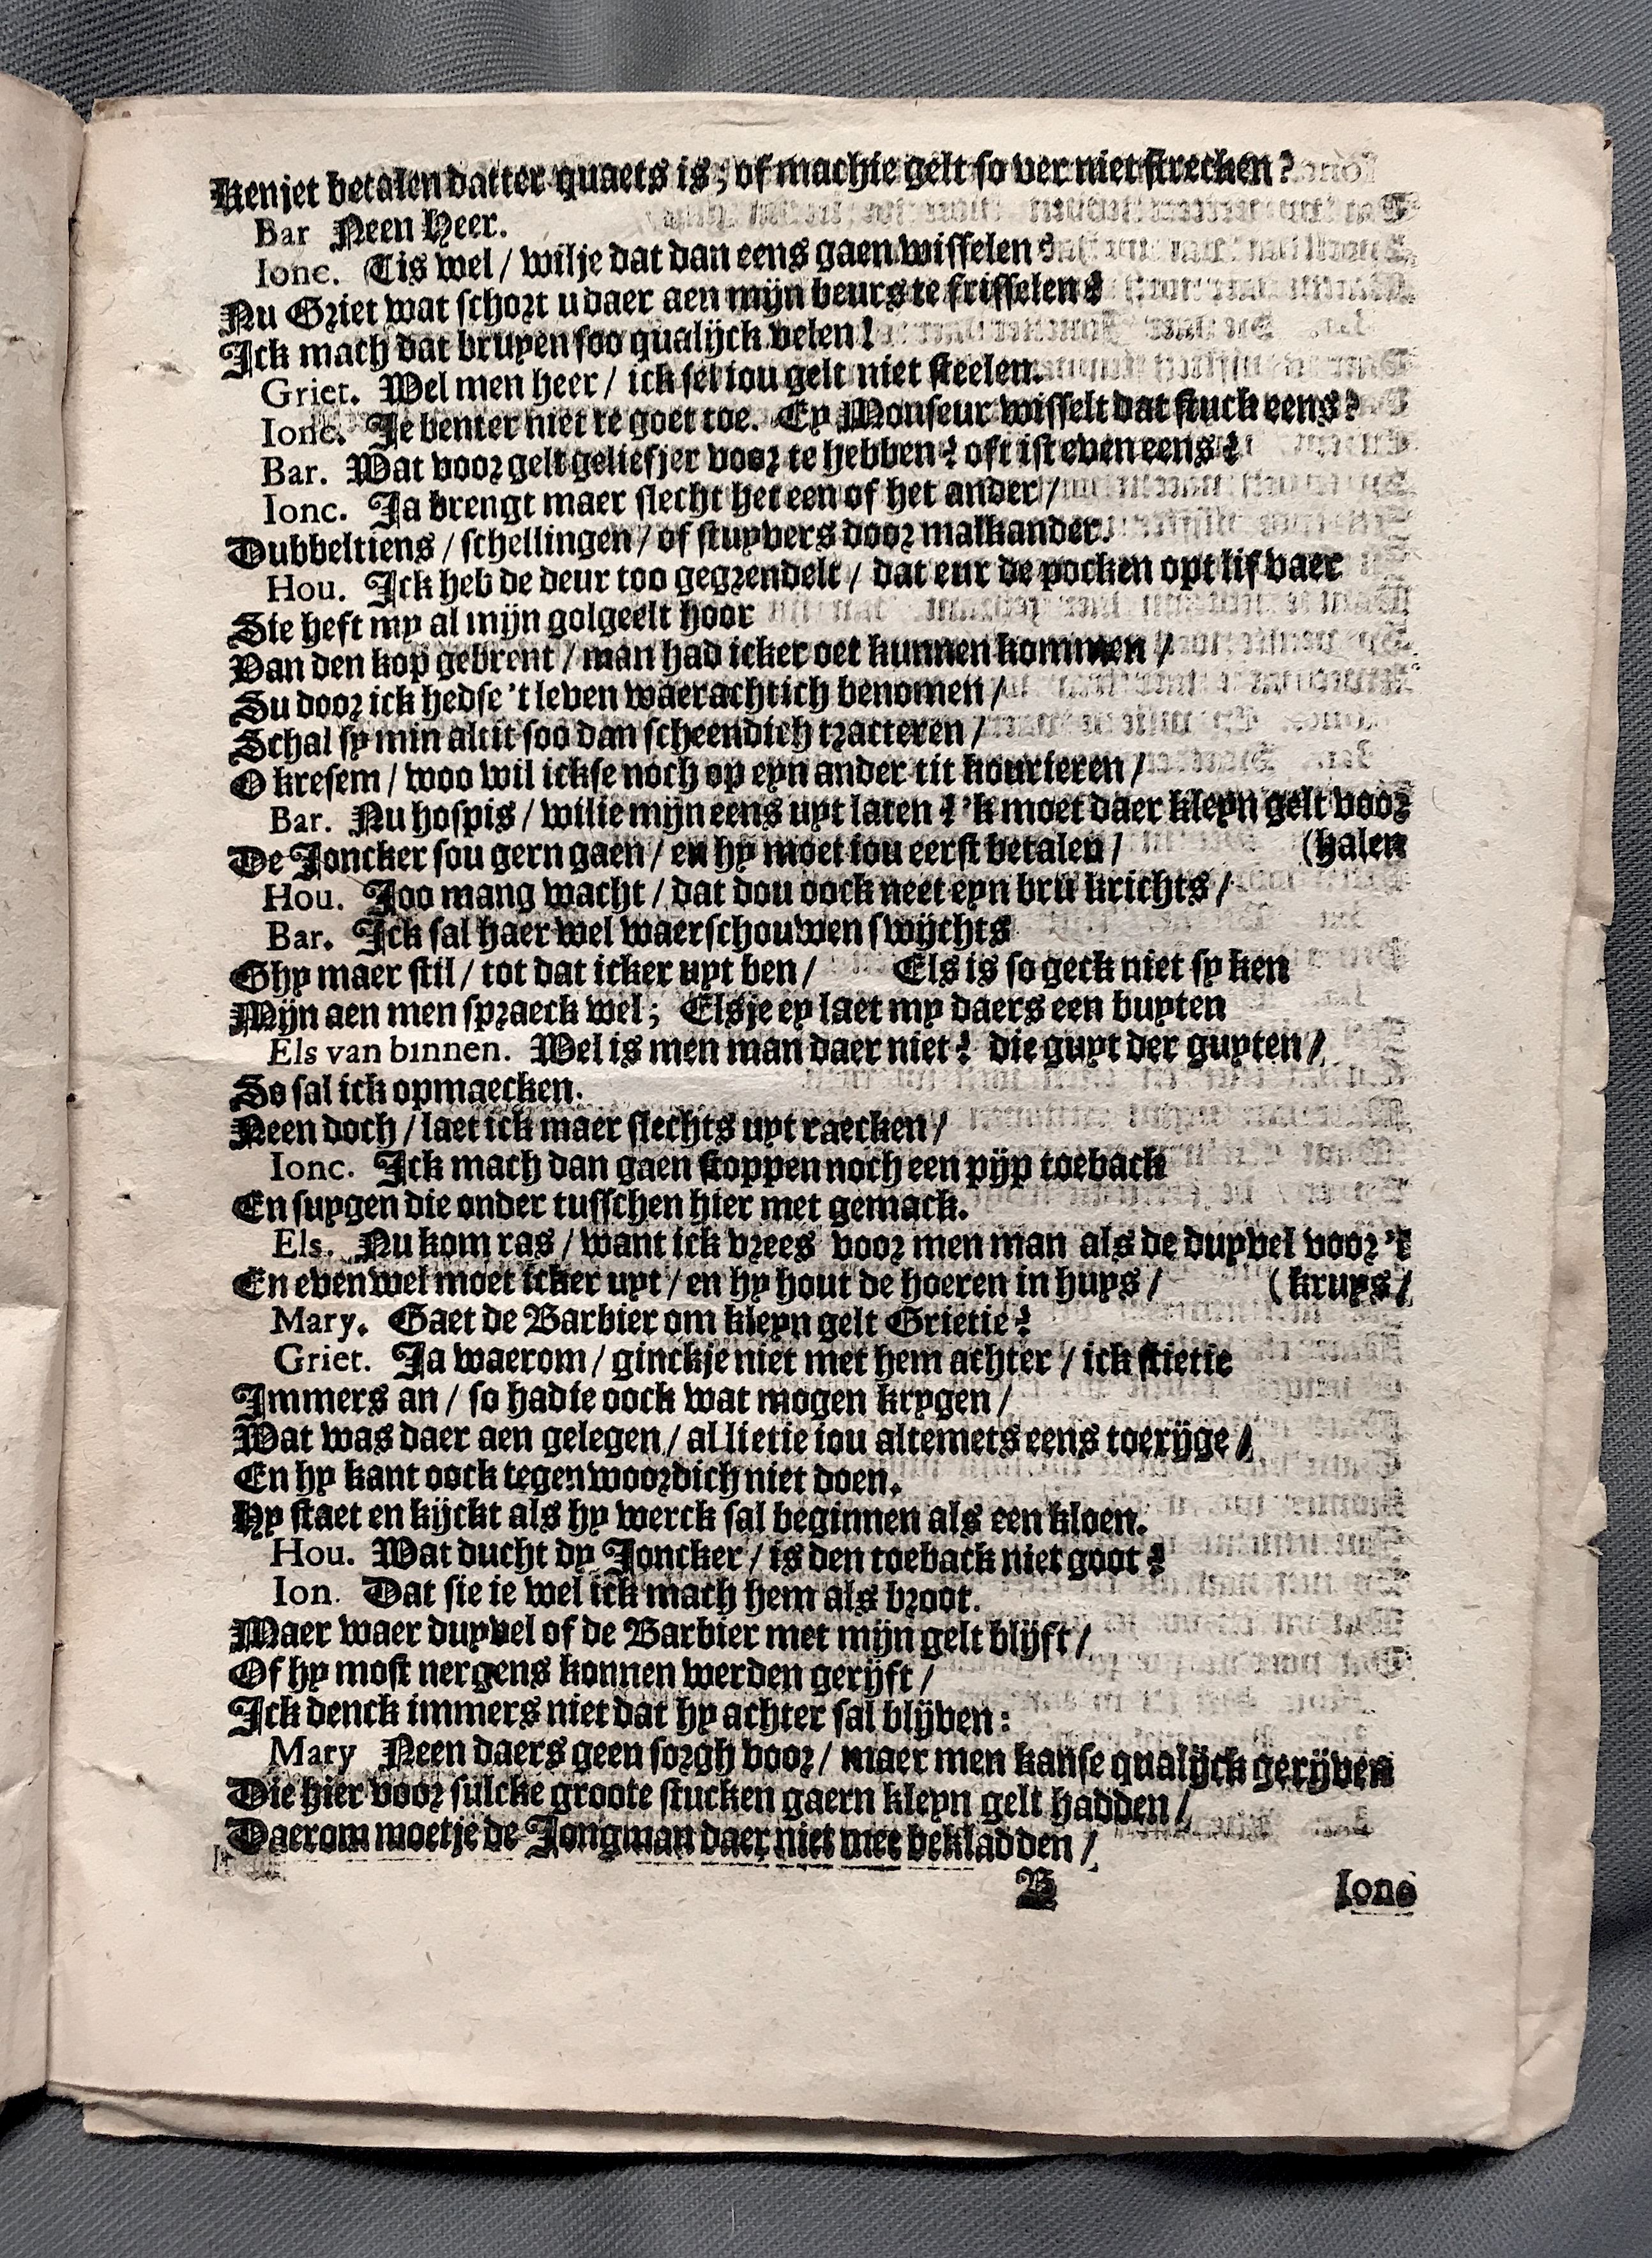 Kenjet betalen datter quaets is; of machie gelt so ver niet strecken?
Bar Neen Heer.
Ionc. Tis wel / wilje dat dan eens gaen wisselen?
Nu Griet wat schort u daer aen mijn beurs te frisselen?
Ick mach dat bruyen soo qualijck velen!
Griet. Wel men heer / ick sel iou gelt niet steelen.
Ionc. Je benter niet te goet toe. Ey Monseur wisselt dat stuck eens?
Bar. Wat voor gelt geliefjer voor te hebben? oft ist even eens?
Ionc. Ja brengt maer slecht het een of het ander /
Dubbeltiens / schellingen / of stuyvers door malkander.
Hou. Ick heb de deur too gegrendelt / dat eur de pocken opt lif vaer
Sie heft my al mijn golgeelt hoor
Van den kop gebrent / man had icker oet kunnen kommen /
Su door ick hedse 't leven waerachtich benomen /
Schal sy min altit soo dan scheendich tracteren /
O kresem / woo wil ickse noch op eyn ander tit kourteren /
Bar. Nu hospis / wilie mijn eens uyt laten? 'k moet daer kleyn gelt voor
De Joncker sou gern gaen / en hy moet iou eerst betalen / (halen
Hou. Joo mang wacht / dat dou oock neet eyn bru krichts /
Bar. Ick sal haer wel waerschouwen swijchts
Ghy maer stil / tot dat icker uyt ben / Els is so geck niet sy ken
Mijn aen men spraeck wel; Elsje ey laet my daers een buyten
Els van binnen. Wel is men man daer niet? die guyt der guyten /
So sal ick opmaecken.
Neen doch / laet ick maer slechts uyt raecken /
Ionc. Ick mach dan gaen stoppen noch een pijp toeback
En suygen die onder tusschen hier met gemack.
Els. Nu kom ras / want ick vrees voor men man als de duyvel voor 't
En evenwel moet icker uyt / en hy hout de hoeren in huys / (kruys /
Mary. Gaet de Barbier om kleyn gelt Grietie?
Griet. Ja waerom / ginckje niet met hem achter / ick stietie
Immers an / so hadie oock wat mogen krygen /
Wat was daer aen gelegen / al lietie iou altemets eens toerijge /
En hy kant oock tegenwoordich niet doen.
Hy staet en kijckt als hy werck sal beginnen als een kloen.
Hou. Wat ducht dy Joncker / is den toeback niet goot?
Ion. Dat sie ie wel ick mach hem als broot.
Maer waer duyvel of de Barbier met mijn gelt blijft /
Of hy most nergens konnen werden gerijft /
Ick denck immers niet dat hy achter sal blijven:
Mary Neen daers geen sorgh voor / maer men kanse qualijck gerijven
Die hier voor sulcke groote stucken gaern kleyn gelt hadden /
Daerom moetje de Jongman daer niet mee bekladden /
B Ionc